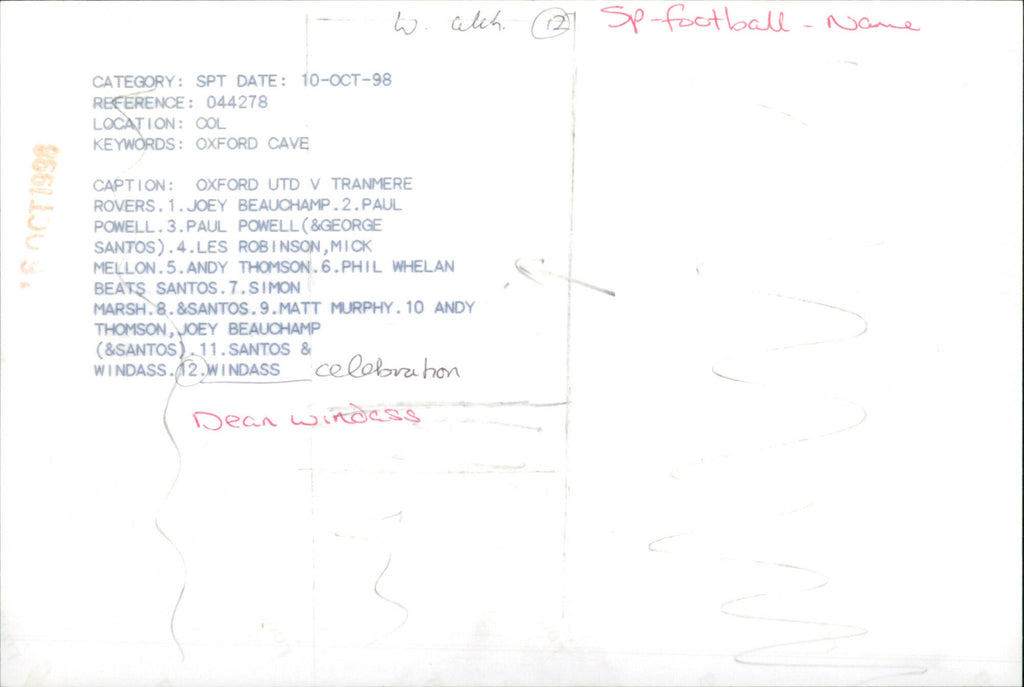 W. alth. 12 Sp-football-Name
CATEGORY: SPT DATE: 10-OCT-98
REFERENCE: 044278
LOCATION: COL
KEYWORDS: OXFORD CAVE
CAPTION: OXFORD UTD V TRANMERE
ROVERS.1.JOEY BEAUCHAMP.2.PAUL
POWELL.3.PAUL POWELL(&GEORGE
SANTOS).4.LES ROBINSON,MICK
MELLON.5.ANDY THOMSON.6.PHIL WHELAN
BEATS SANTOS.7.SIMON
MARSH.8.&SANTOS.9.MATT MURPHY.10 ANDY
THOMSON,JOEY BEAUCHAMP
(&SANTOS).11.SANTOS &
WINDASS.12.WINDASS celebration
Dean Windass
OCT 1998